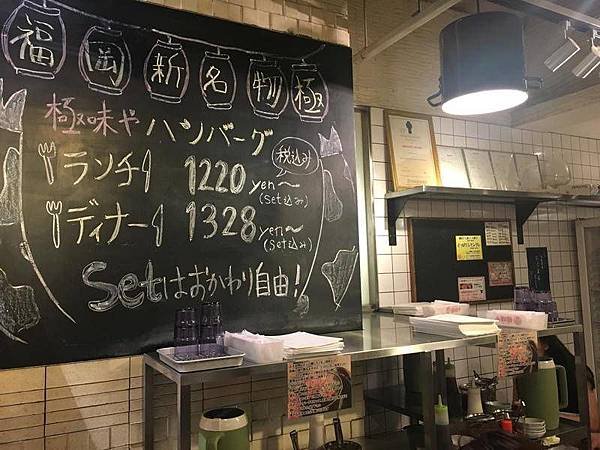 福岡新名物極
極味や ハンバーグ
ランチ 1220 yen〜 税込み
(set込み)
ディナー 1328 yen〜
(set込み)
Setはおかわり自由!